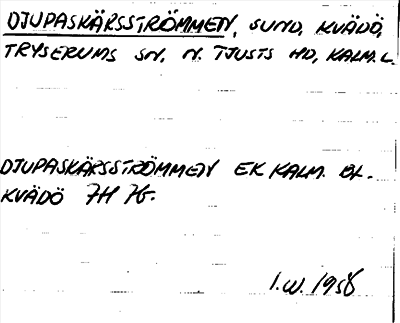 DJUPASKÄRSSTRÖMMEN, SUND, KVÄDÖ,
TRYSERUMS SN, N. TJUSTS HD, KALM.L.
DJUPASKÄRSSTRÖMMEN EK KALM. BL.
KVÄDÖ 7H 7G.
I.W. 1958